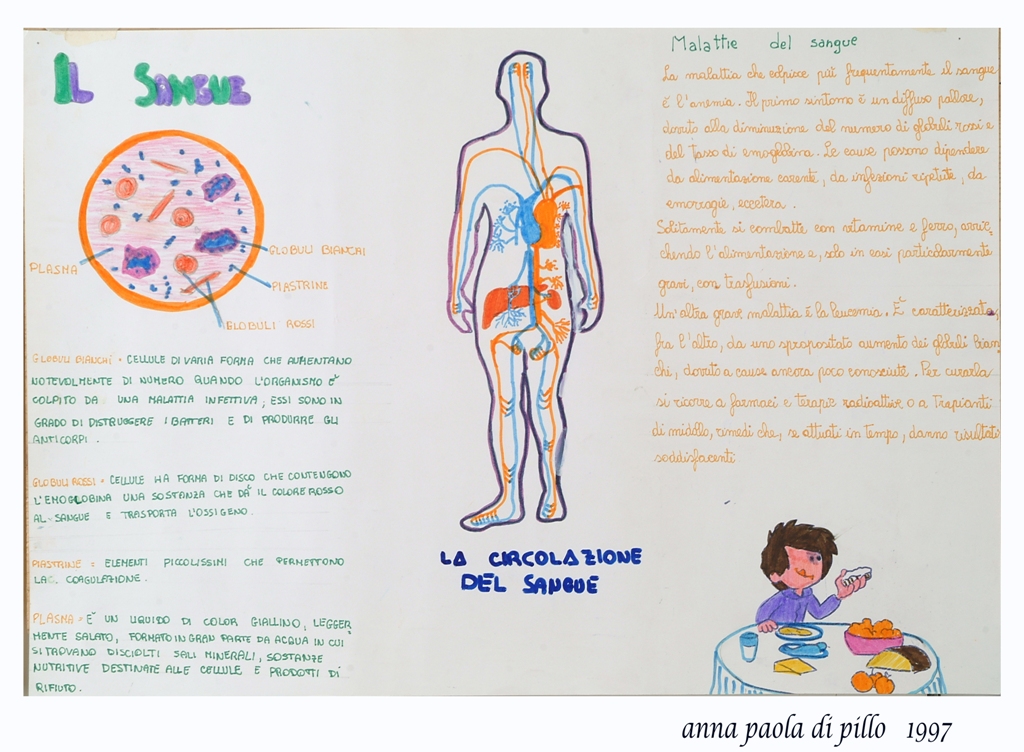 IL SANGUE
PLASMA
GLOBULI BIANCHI
PIASTRINE
GLOBULI ROSSI
GLOBULI BIANCHI = CELLULE DI VARIA FORMA CHE AUMENTANO
NOTEVOLMENTE DI NUMERO QUANDO L'ORGANISMO E'
COLPITO DA UNA MALATTIA INFETTIVA; ESSI SONO IN
GRADO DI DISTRUGGERE I BATTERI E DI PRODURRE GLI
ANTICORPI.
GLOBULI ROSSI = CELLULE HA FORMA DI DISCO CHE CONTENGONO
L'EMOGLOBINA UNA SOSTANZA CHE DA' IL COLORE ROSSO
AL SANGUE E TRASPORTA L'OSSIGENO.
PIASTRINE = ELEMENTI PICCOLISSIMI CHE PERMETTONO
LA COAGULAZIONE.
PLASMA = E' UN LIQUIDO DI COLOR GIALLINO, LEGGER
MENTE SALATO, FORMATO IN GRAN PARTE DA ACQUA IN CUI
SI TROVANO DISCIOLTI SALI MINERALI, SOSTANZE
NUTRITIVE DESTINATE ALLE CELLULE E PRODOTTI DI
RIFIUTO.
LA CIRCOLAZIONE
DEL SANGUE
Malattie del sangue
La malattia che colpisce più frequentemente il sangue
è l'anemia. Il primo sintomo è un diffuso pallore,
dovuto alla diminuzione del numero di globuli rossi e
del tasso di emoglobina. Le cause possono dipendere
da alimentazione carente, da infezioni ripetute, da
emorragie, eccetera.
Solitamente si combatte con vitamine e ferro, arric
chendo l'alimentazione e, solo in casi particolarmente
gravi, con trasfusioni.
Un'altra grave malattia è la leucemia. È caratterizzata,
fra l'altro, da uno spropositato aumento dei globuli bian
chi, dovuto a cause ancora poco conosciute. Per curarla
si ricorre a farmaci e terapie radioattive o a trapianti
di midollo, rimedi che, se attuati in tempo, danno risultati
soddisfacenti
anna paola di pillo 1997